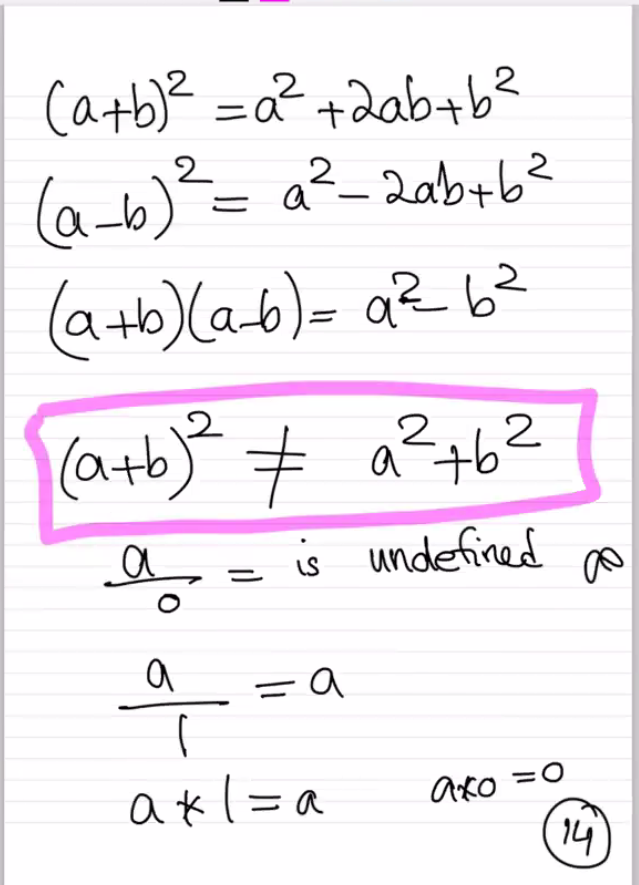 (a+b)² = a² + 2ab + b²
(a-b)² = a² - 2ab + b²
(a+b)(a-b) = a² - b²
(a+b)² ≠ a² + b²
a/0 = is undefined ∞
a/1 = a
a * 1 = a a*0 = 0
14